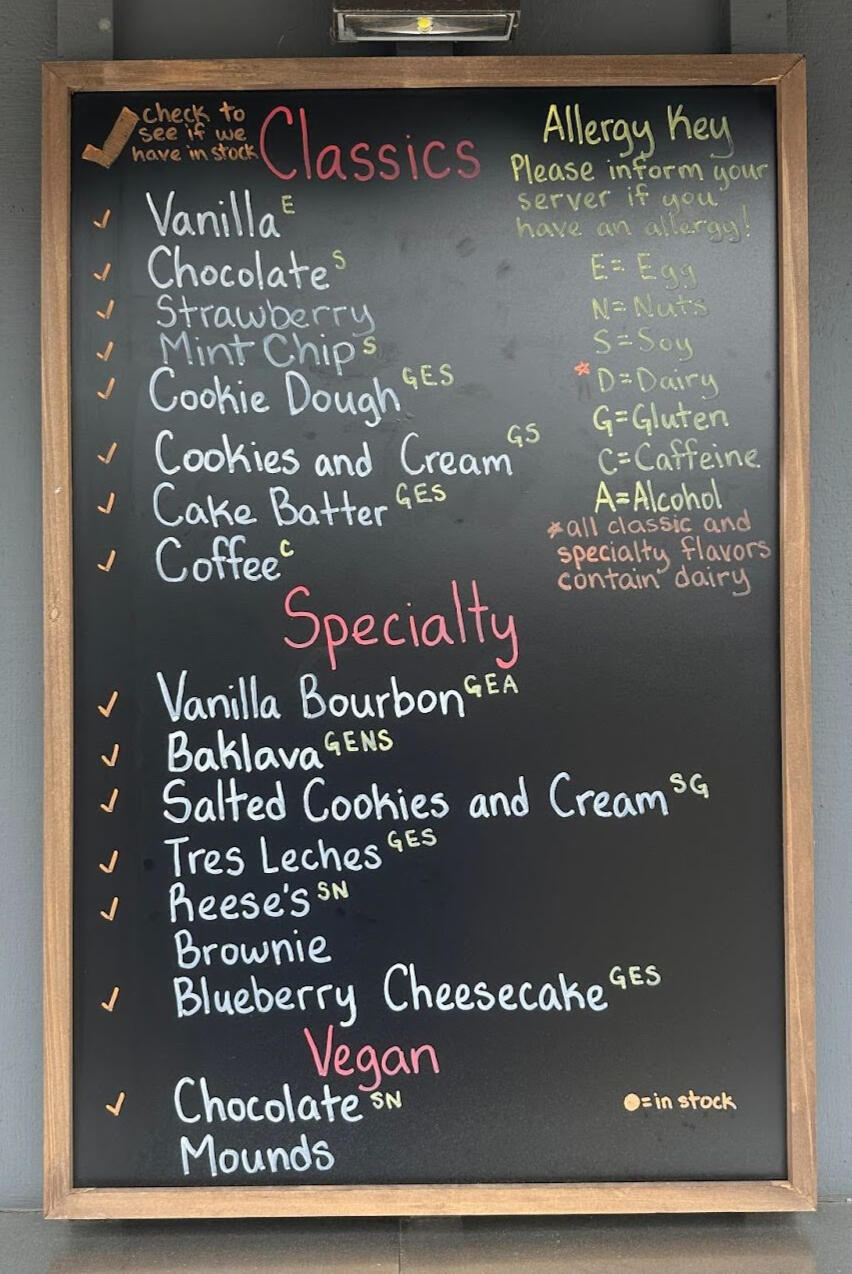 ✓ check to
see if we
have in stock
Classics
✓ Vanilla E
✓ Chocolate S
✓ Strawberry
✓ Mint Chip S
✓ Cookie Dough GES
✓ Cookies and Cream GS
✓ Cake Batter GES
✓ Coffee C
Allergy Key
Please inform your
server if you
have an allergy!
E= Egg
N= Nuts
S=Soy
*D=Dairy
G=Gluten
C=Caffeine
A=Alcohol
*all classic and
specialty flavors
contain dairy
Specialty
✓ Vanilla Bourbon GEA
✓ Baklava GENS
✓ Salted Cookies and Cream SG
✓ Tres Leches GES
✓ Reese's SN
Brownie
✓ Blueberry Cheesecake GES
Vegan
✓ Chocolate SN
Mounds
●=in stock